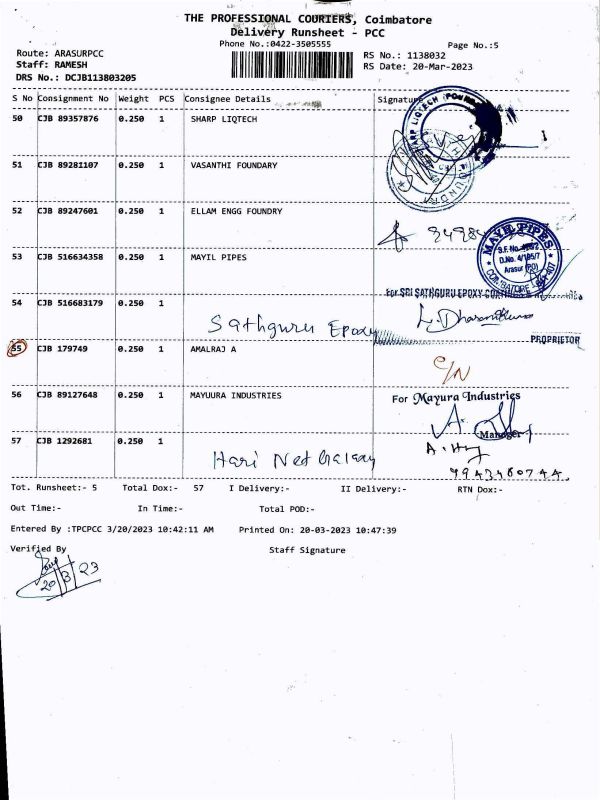 THE PROFESSIONAL COURIERS, Coimbatore
Delivery Runsheet - PCC
Phone No.:0422-3505555
Page No.:5
Route: ARASURPCC
Staff: RAMESH
DRS No.: DCJB113803205
RS No.: 1138032
RS Date: 20-Mar-2023
S No Consignment No Weight PCS Consignee Details Signature
50 CJB 89357876 0.250 1 SHARP LIQTECH
SHARP LIQTECH
51 CJB 89281107 0.250 1 VASANTHI FOUNDARY
52 CJB 89247601 0.250 1 ELLAM ENGG FOUNDRY
53 CJB 516634358 0.250 1 MAYIL PIPES
MAYIL PIPES
D.No. 4/195/7
Arasur (PO)
54 CJB 516683179 0.250 1 Sathguru Epoxy
For SRI SATHGURU EPOXY
PROPRIETOR
55 CJB 179749 0.250 1 AMALRAJ A
C/N
56 CJB 89127648 0.250 1 MAYUURA INDUSTRIES
For Mayura Industries
Manager
57 CJB 1292681 0.250 1
Tot. Runsheet:- 5 Total Dox:- 57 I Delivery:- II Delivery:- RTN Dox:-
Out Time:- In Time:- Total POD:-
Entered By :TPCPCC 3/20/2023 10:42:11 AM Printed On: 20-03-2023 10:47:39
Verified By Staff Signature
20/3/23